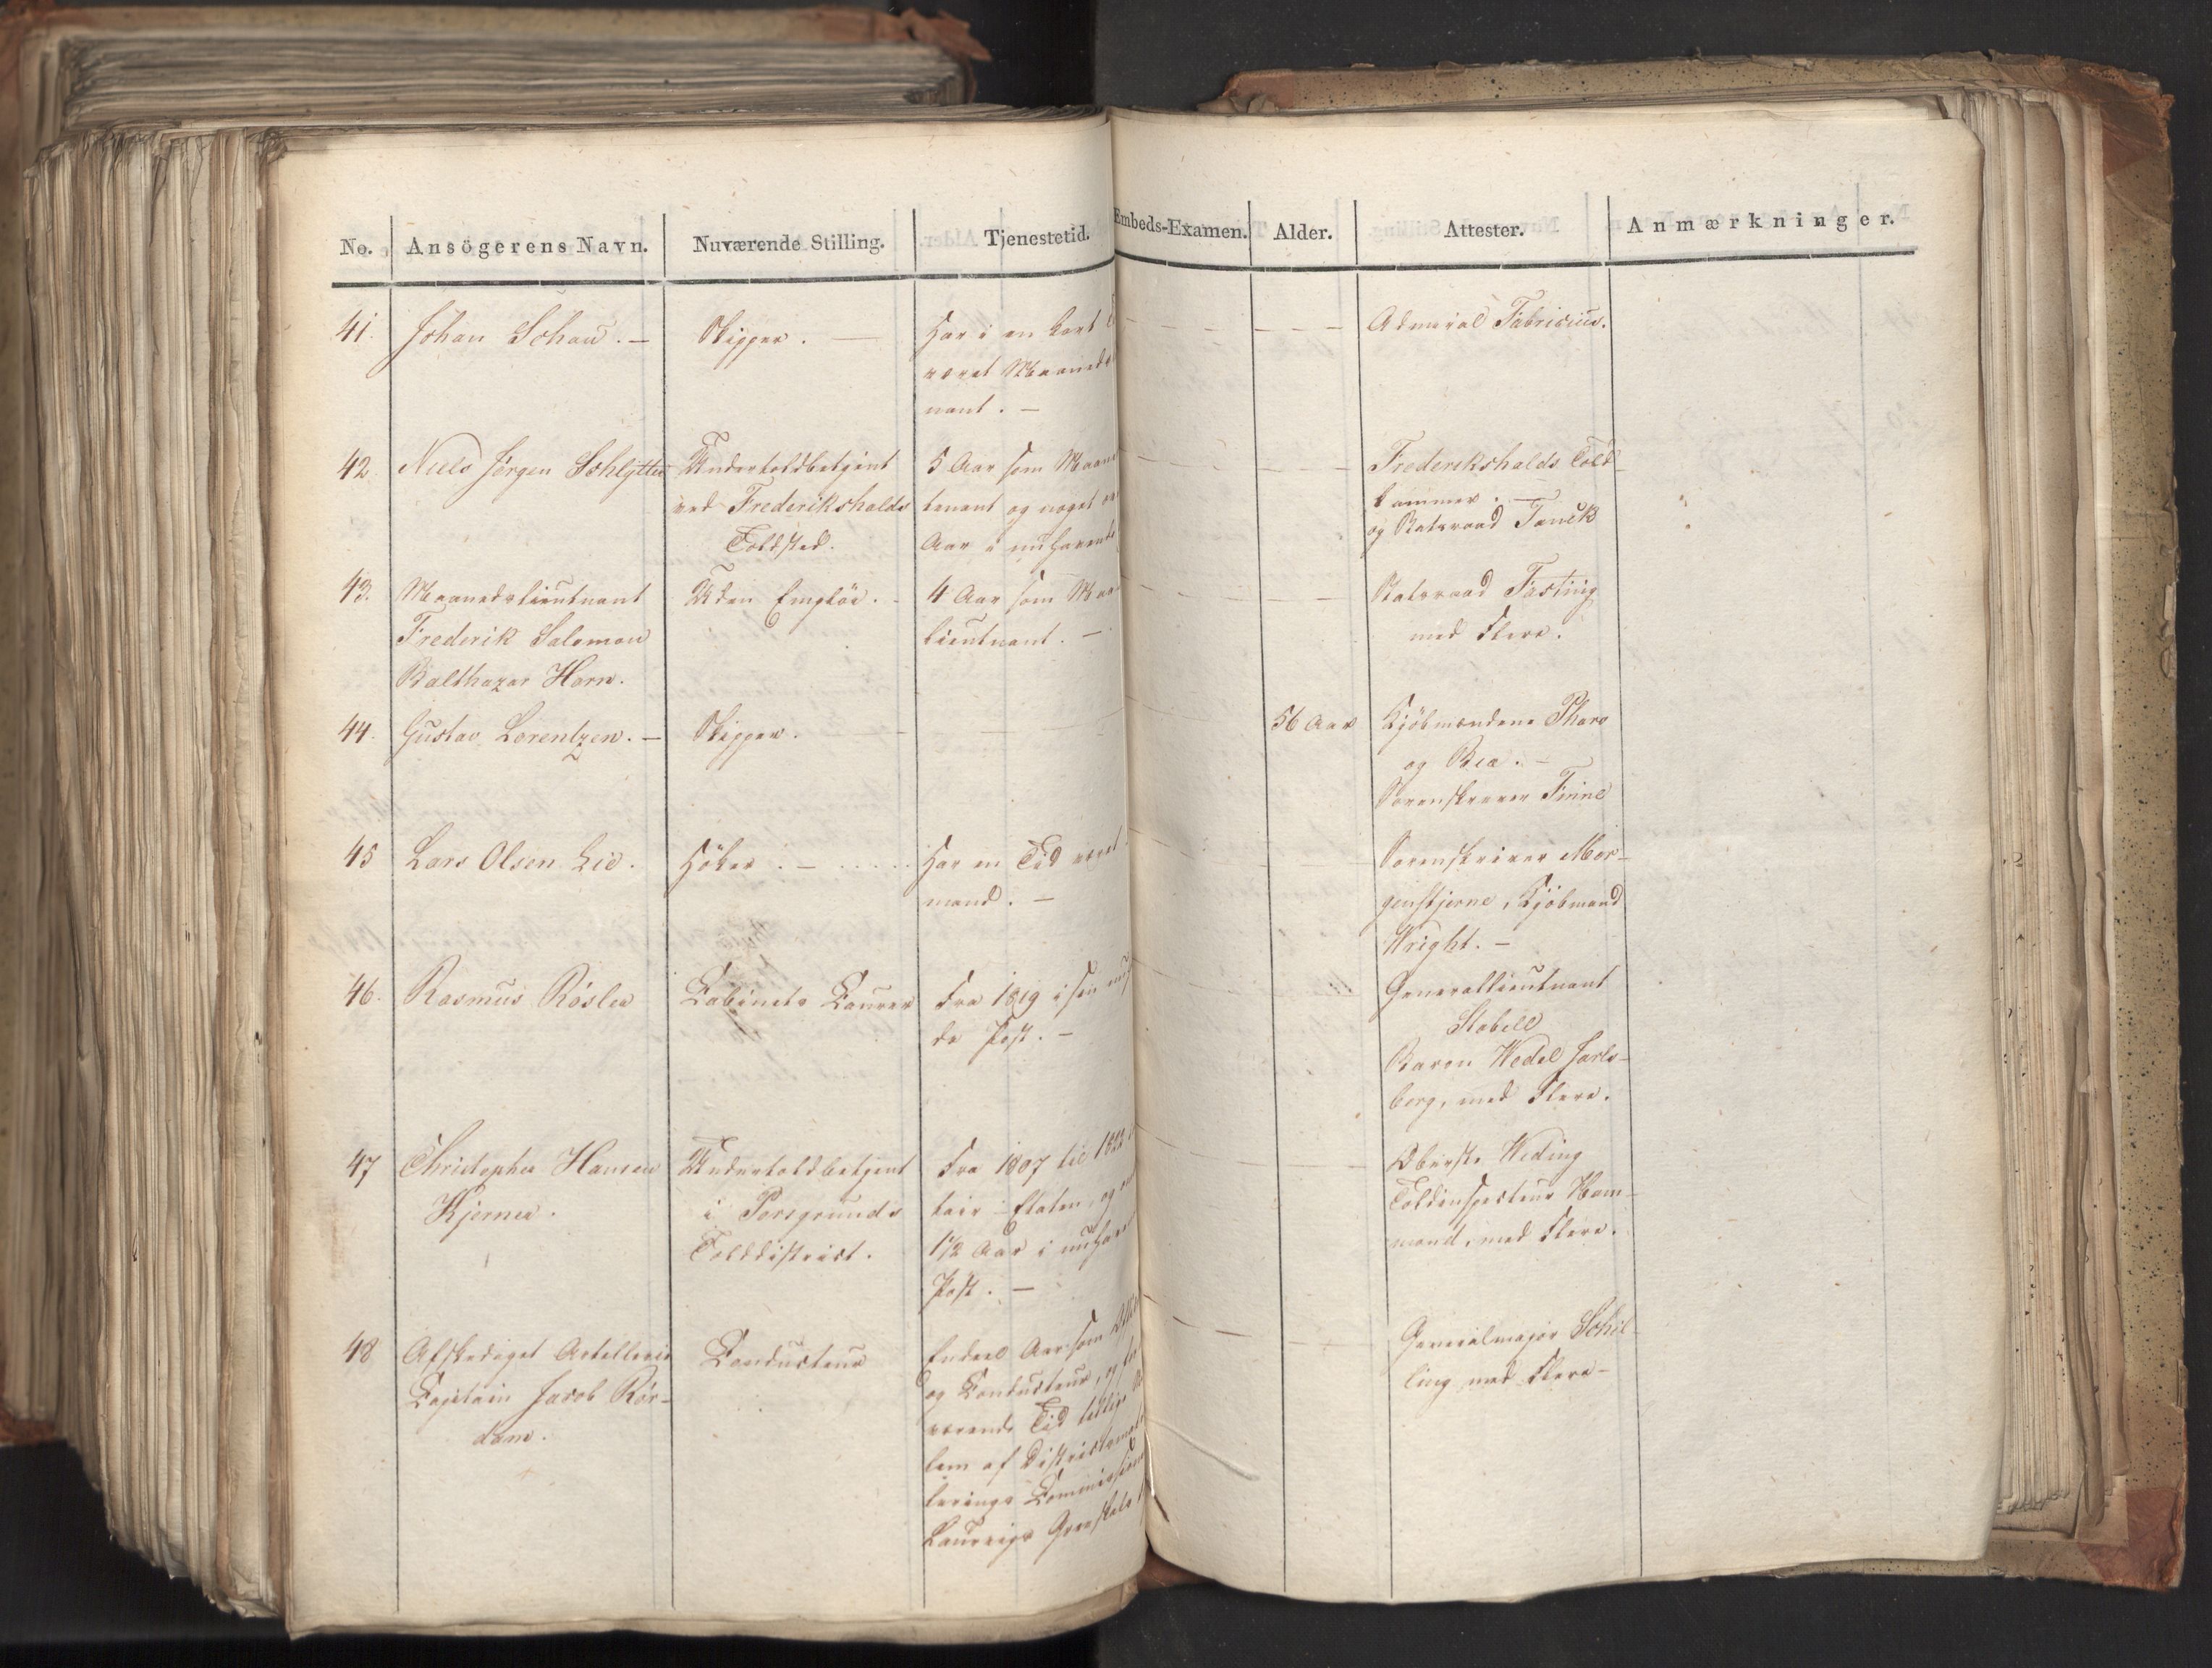 No. Ansögerens Navn. Nuværende Stilling. Tjenestetid. Embeds-Examen. Alder. Attester. Anmærkninger.
41. Johan Schau. — Skipper. — Har i en kort
været Maaneds
nant. —
Admiral Fabricius.
42. Niels Jörgen Schlytter
Undertoldbetjent
ved Frederikshalds
Toldsted.
5 Aar som Maan
tenant og noget
Aar i nuhavende
Frederikshalds Told
kammer. —
og Statsraad Tanck
43. Maanedslieutnant
Frederik Salomon
Balthazar Horn.
Uden Emploi. —
4 Aar som Maa
lieutnant. —
Statsraad Fasting
med Flere.
44. Gustav Lorentzen. —
Skipper.
56 Aar
Kjöbmændene Pharo
og Bea. —
Sorenskriver Finne
45 Lars Olsen Lie.
Höker. —
Har en Tid været
mand. —
Sorenskriver Mor-
genstjerne, Kjöbmand
Wright. —
46. Rasmus Rösler
Cabinets Courer
Fra 1819 i sin nuh
de Post. —
Generallieutnant
Stabell
Baron Wedel Jarls-
berg, med Flere.
47 Christopher Hansen
Kjerner.
Undertoldbetjent
i Porsgrunds
Tolddistrict.
Fra 1807 til 1822
tair-Etaten, og
1½ Aar i nuhave
Post. —
Oberst Weding
Toldinspecteur Ham-
mond, med Flere.
48 Afskediget Artellerie
Capitain Jacob Rör-
dam.
Conducteur
Endeel Aar som
og Conducteur, og for
værende Tid tillige
lem af Districtsma
lerings Commission
Laurvigs Grevskab
Generalmajor Schil-
ling med Flere—